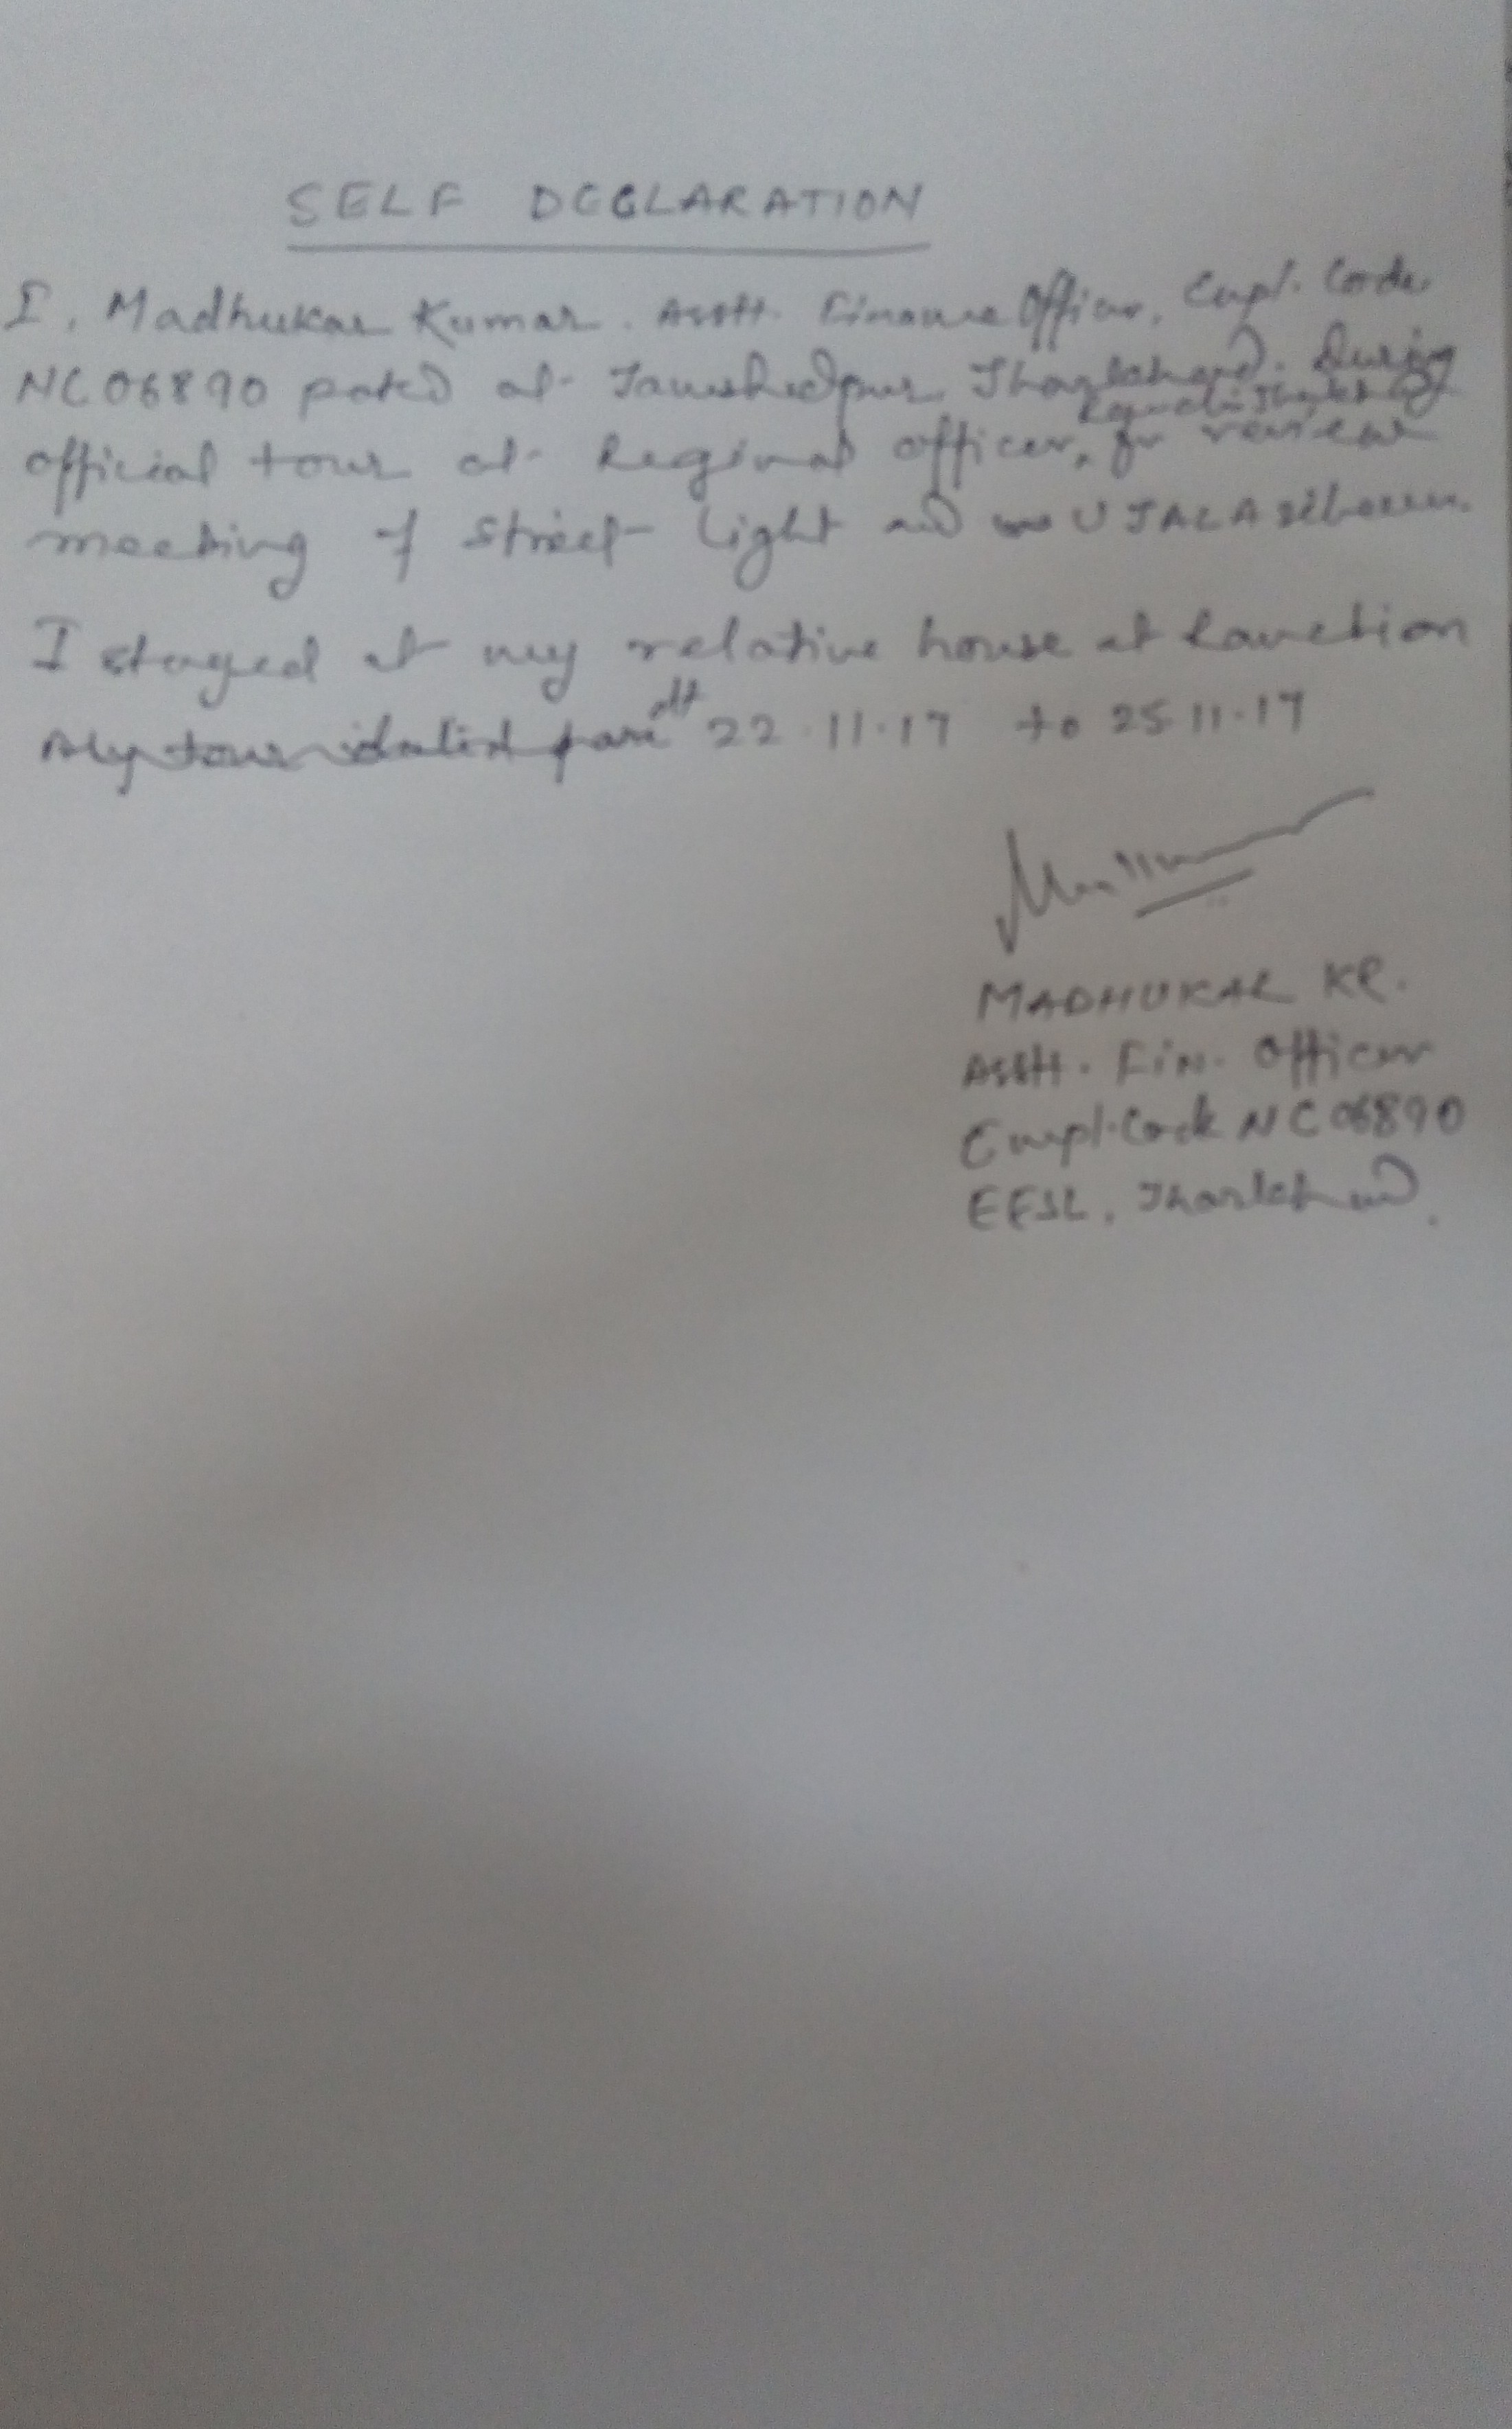 SELF DECLARATION
I, Madhukar Kumar. Asstt. Finance Officer, Empl. Code
NC06890 posted at Jamshedpur, Jharkhand. During
official tour at Reginal officer, for review
meeting of Street Light and UJALA scheme.
I stayed at my relative house at
dtt 22.11.17 to 25.11.17
MADHUKAR KR.
Asstt. Fin. Officer
Empl. Code NC06890
EESL, Jharkhand.